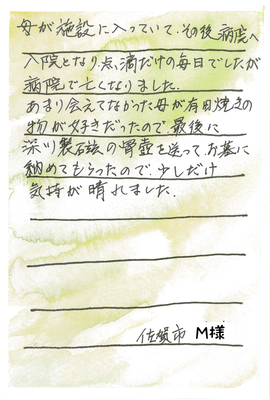 母が施設に入っていて、その後病院へ
入院となり点滴だけの毎日でしたが
病院で亡くなりました。
あまり会えてなかった母が有田焼きの
物が好きだったので、最後に
深川製磁の骨壺を送って、お墓に
納めてもらったので、少しだけ
気持が晴れました。
佐賀市 M様